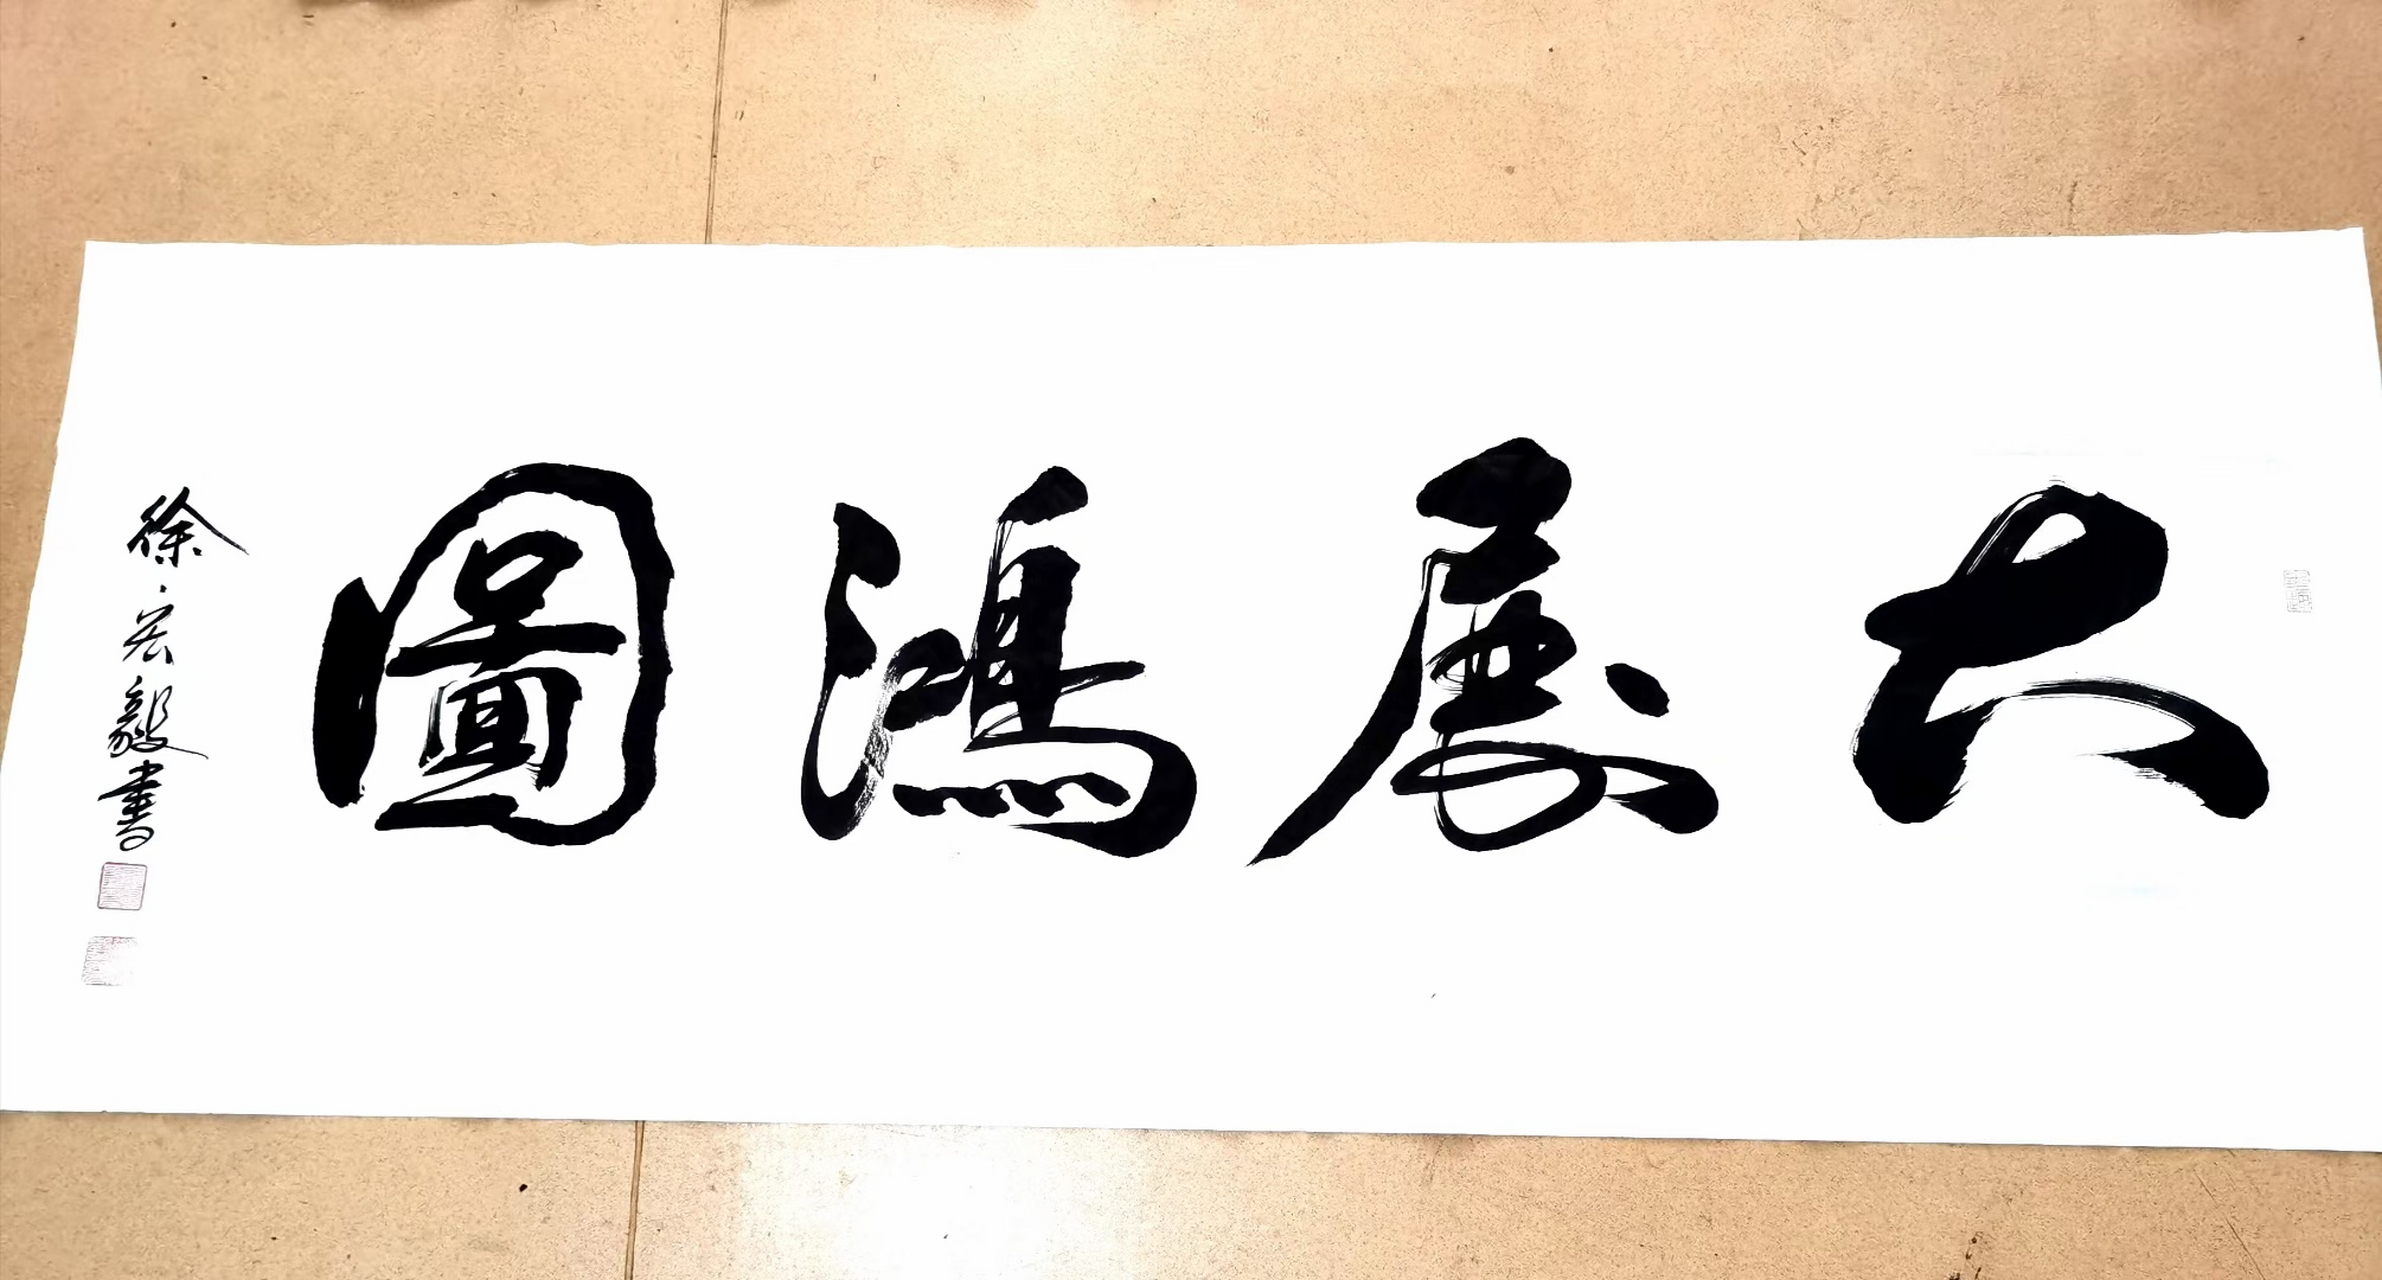 大展鴻圖
徐宏毅書